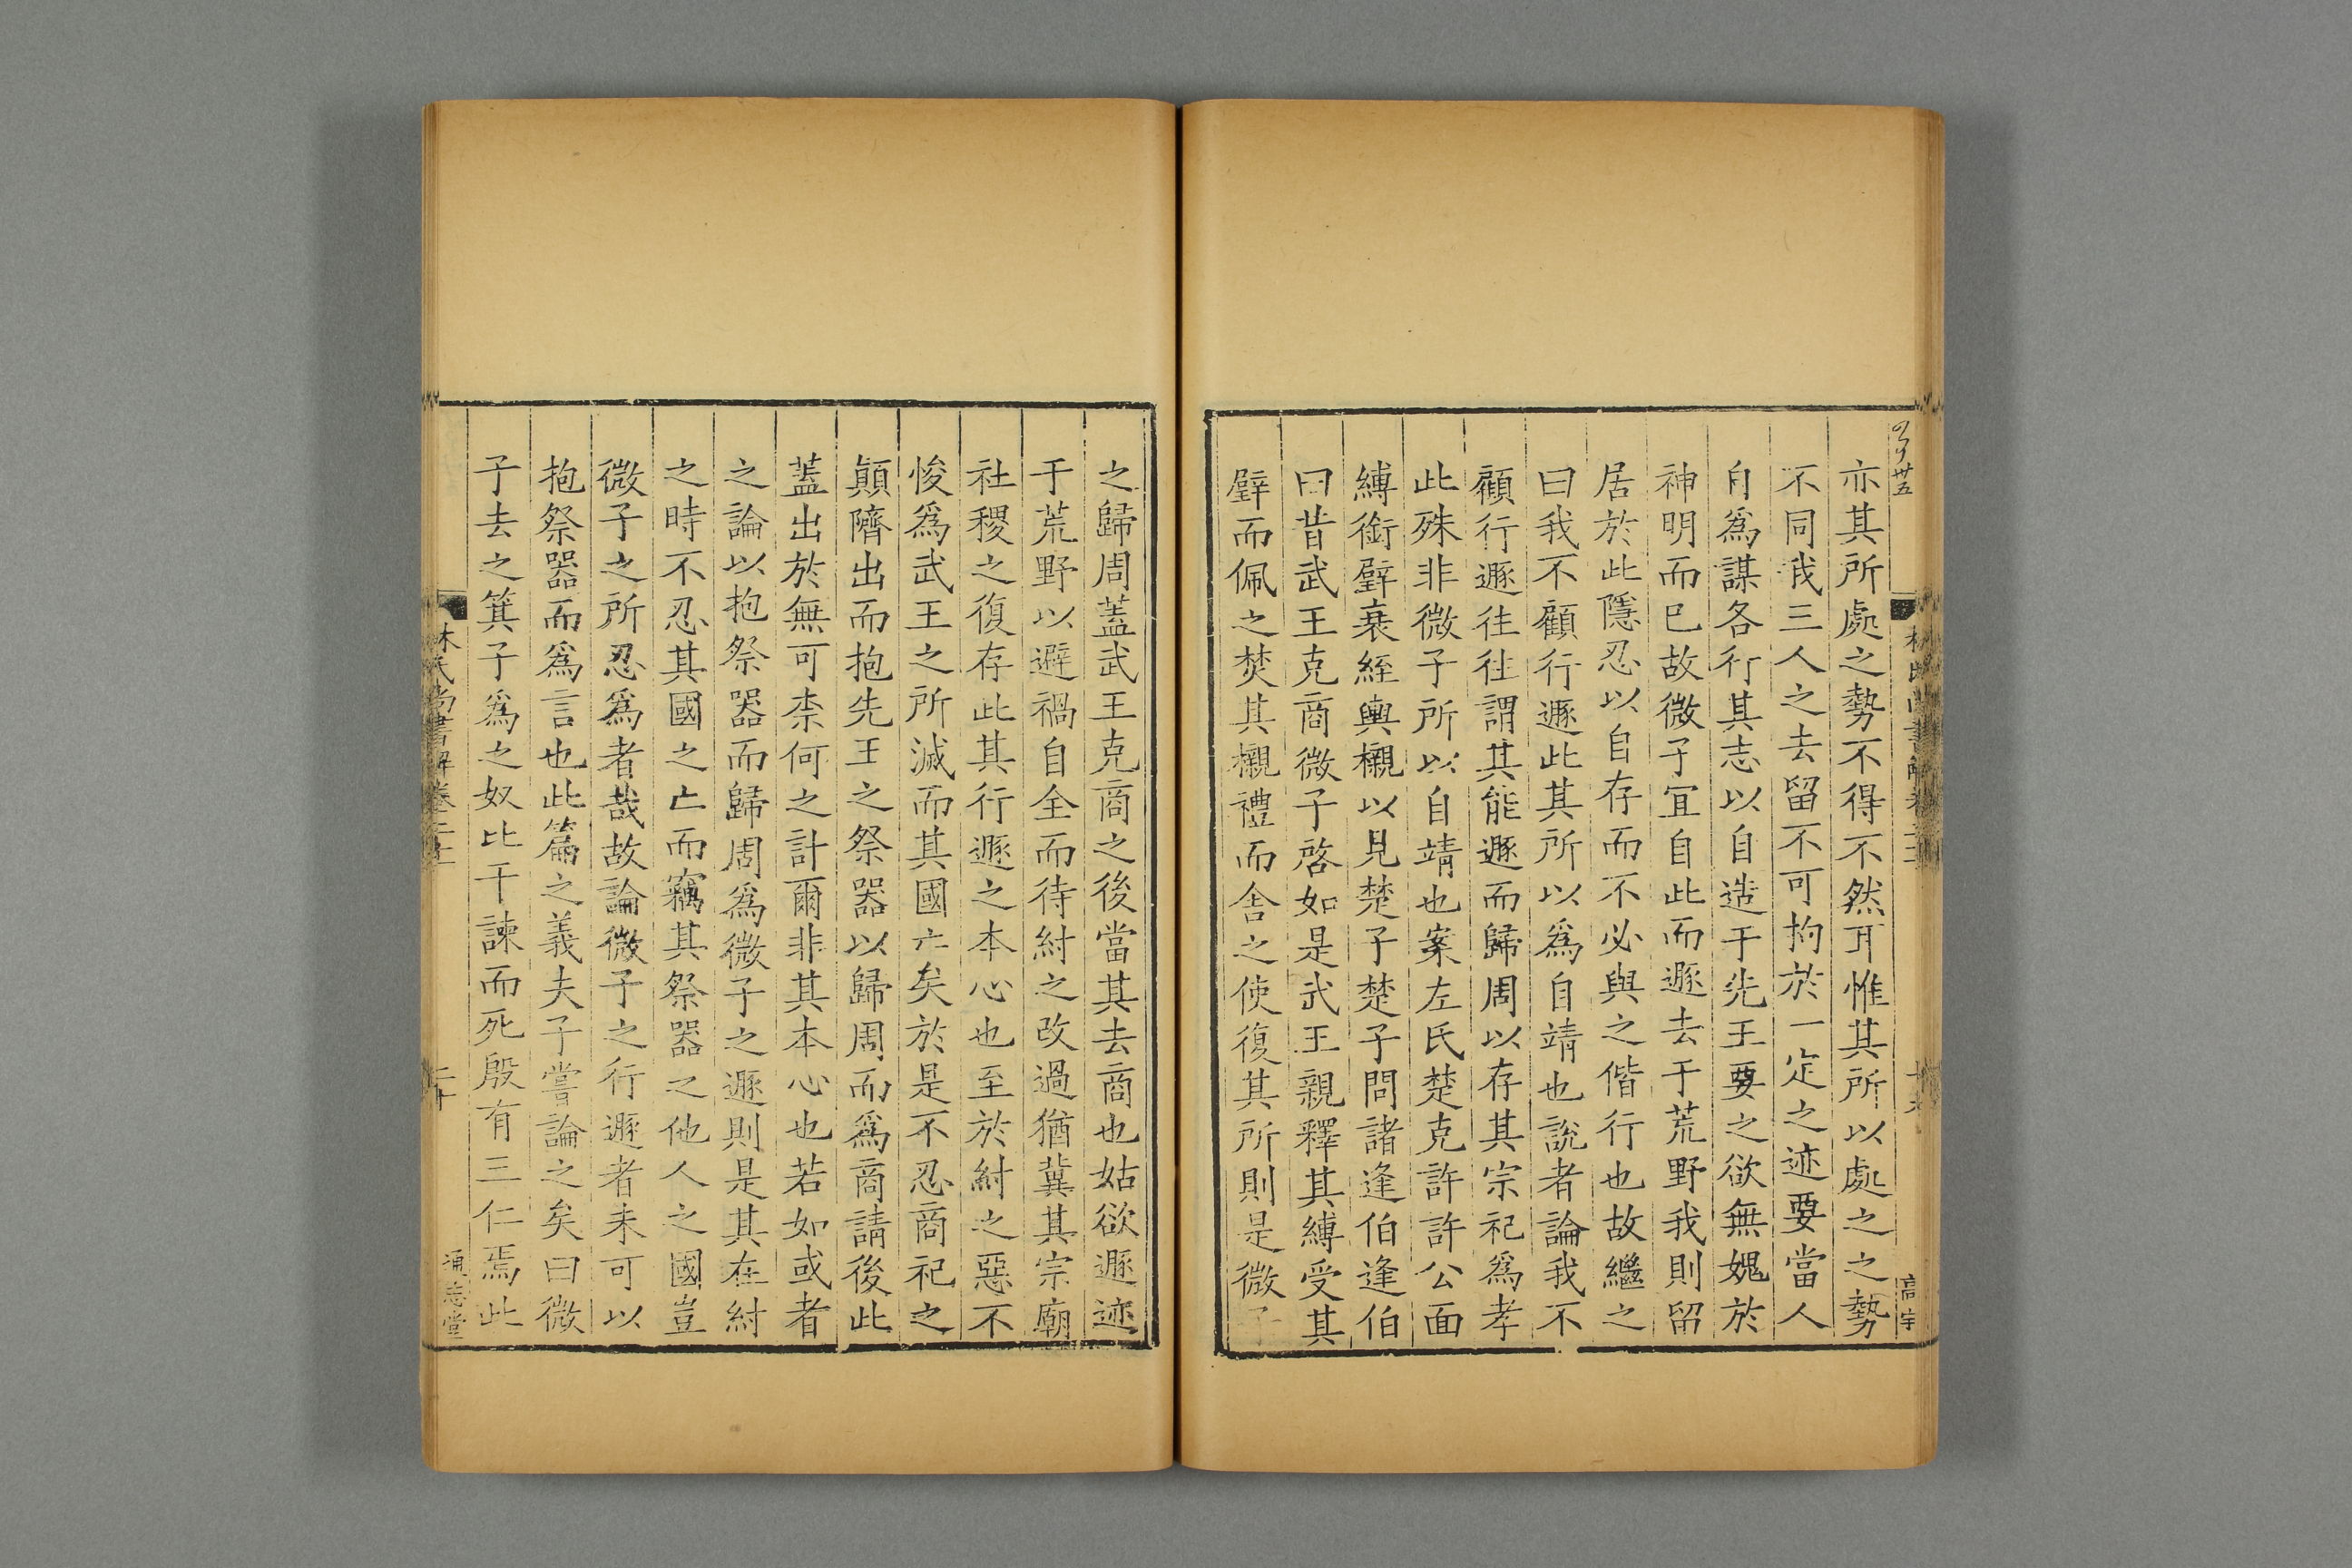 亦其所處之勢不得不然耳惟其所以處之之勢
不同我三人之去留不可拘於一定之迹要當人
自為謀各行其志以自造于先王要之欲無媿於
神明而已故微子宜自此而遯去于荒野我則留
居於此隱忍以自存而不必與之偕行也故繼之
曰我不顧行遯此其所以為自靖也說者論我不
顧行遯往往謂其能遯而歸周以存其宗祀爲孝
此殊非微子所以自靖也案左氏楚克許許公面
縛銜璧衰絰輿櫬以見楚子楚子問諸逢伯逢伯
曰昔武王克商微子啓如是武王親釋其縛受其
璧而佩之焚其櫬禮而舍之使復其所則是微子
之歸周蓋武王克商之後當其去商也姑欲遯迹
于荒野以避禍自全而待紂之改過猶冀其宗廟
社稷之復存此其行遯之本心也至於紂之惡不
悛爲武王之所滅而其國亡矣於是不忍商祀之
顛隮出而抱先王之祭器以歸周而爲商請後此
蓋出於無可柰何之計爾非其本心也若如或者
之論以抱祭器而歸周爲微子之遯則是其在紂
之時不忍其國之亡而竊其祭器之他人之國豈
微子之所忍爲者哉故論微子之行遯者未可以
抱祭器而爲言也此篇之義夫子嘗論之矣曰微
子去之箕子爲之奴比干諫而死殷有三仁焉此
林氏尚書解卷二十
二十
通志堂